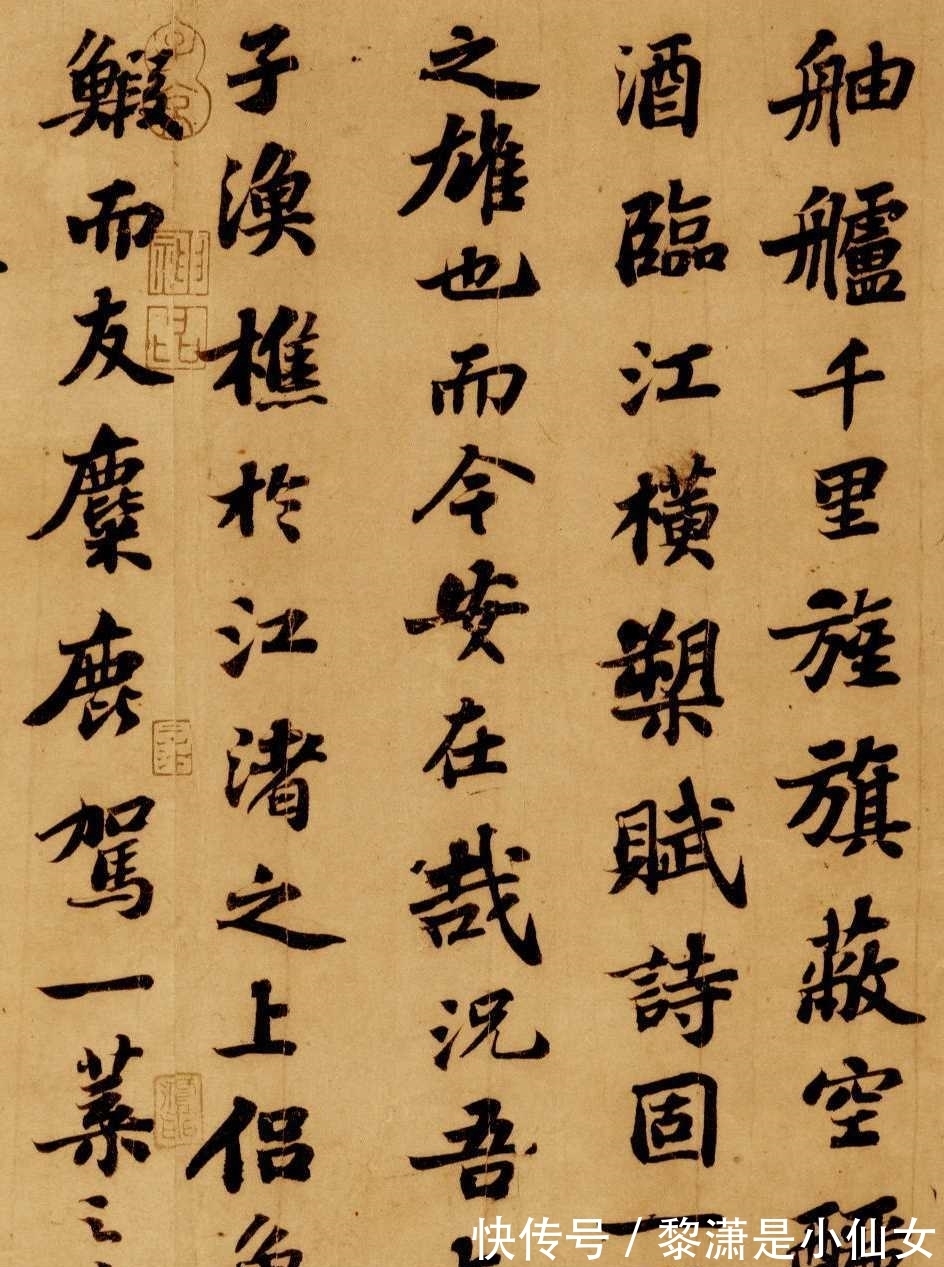 舳艫千里旌旗蔽空釃
酒臨江橫槊賦詩固一
之雄也而今安在哉況吾
子漁樵於江渚之上侶魚
鰕而友麋鹿駕一葉之
快传号 / 黎潇是小仙女